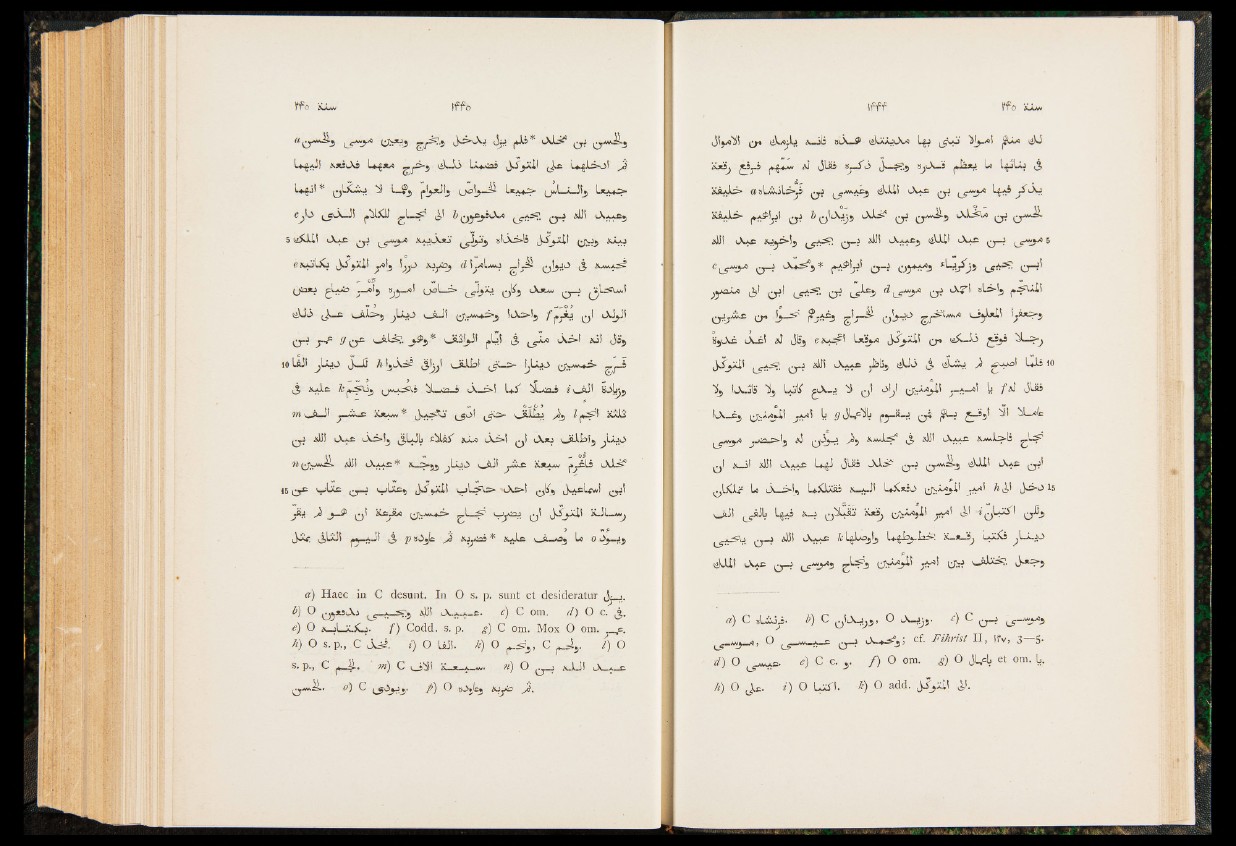 ١۴۴۴ سنة ٢۴٥
لك منهم اموالا تبنى بها مدينتك هذه فانه يلزمك من الاموال
فى بنائها ما يعظم قدره ويجلّ ذكره فقال له سمّهم فرفع رقعة
يذكر فيها موسى بن عبد الملك وعيسى بن فرّخانشاه a خليفة
الحسن بن مخلّد والحسن بن مخلد وزيدان b بن ابراهيم خليفة
5 موسى بن عبد الملك وعبيد الله بن يحيى واخويه عبد الله
ابن يحيى وزكرياء وميمون بن ابراهيم *ومحمّد بن موسى c
المنجّم واخاه احمد بن موسى d وعلىّ بن يحيى ابن ابى منصور
وجعفرا المعلوف مستخرج ديوان الخراج وغيرهم نحوًا من عشرين
رجلا فوقع ذلك من المتوكّل موقعا اعجبه e وقال له اغد غدوة
10 فلمّا اصبح لم يشكّ فى ذلك وناظر عبيد الله بن يحيى المتوكّل
فقال له f يا امير المؤمنين اراد ان لا يدع كاتبا ولا قائدا ولا
عاملا الّا اوقع بهم فمن يقوم بالاعمال g يا امير المؤمنين وغدا
نجاح فاجلسه عبيد الله فى مجلسه ولم يؤذن له واحضر موسى
ابن عبد الملك والحسن بن مخلد فقال لهما عبيد الله انه ان
15 دخل الى h امير المؤمنين دفعكما اليه فقتلكما واخذ ما تملكان
ولكن اكتبا i الى امير المؤمنين رقعة تقبّلان به فيها بالفى الف
دينار فكتبا رقعة بخطوطهما واوصلها k عبيد الله بن يحيى
وجعل يختلف بين امير المؤمنين ونجاح وموسى بن عبد الملك
a) C فرنشاه. b) C وزيدان, O وزيد. c) C وموسى بن
موسى, O ومحمد بن عيسى; cf. Fihrist II, ١٢٧, 3—5.
d) O عيسى. e) C c. و. f) O om. g) O باعمال et om. يا.
h) O على. i) O اكتبا. k) O add. الى المتوكّل.
سنة ٢۴٥ ١۴۴٥
والحسن بن مخلد *فلم يزل يدخل ويخرج ويعين موسى والحسن a
ثم ادخلهما على المتوكّل فضمنا ذلك وخرج معهما فدفعه اليهما
جميعا والناس جميعا الخواصّ والعوامّ وهما لا يشكّان *انهما
وعبيد الله بن يحيى مدفوعون b الى نجاح للكلام الذى دار c
5 بينه وبين المتوكّل فاخذاه وتولّى تعذيبه موسى بن عبد الملك
فحبسه فى ديوان الخراج بسامرّا d وضربه دررا وامر المتوكّل بكاتبه e
اسحاق بن سعد وكان يتولّى خاصّ اموره وامر ضياع بعض
الولد ان يغرّم f واحدا وخمسين الف دينار وحلف على ذلك
وقال انه اخذ منّى فى ايّام الواثق *وهو يخلف عن g عمر بن
10 فرج خمسين دينارا حتى اطلق ارزاقى فخذوا h لكلّ دينار الفا
وزيادة الف i فضلا كما اخذ فضلا فحبس ونجّم k عليه فى
ثلثة انجم l ولم يطلق حتى ادّى تعجيل *سبعة عشر الف m
دينار واطلق بعد ان اخذ منه كفلاء بالباقى واخذ عبد الله بن
مخلد فاغرم سبعة عشر الف دينار ووجّه *عبيد الله الحسين n
15 ابن اسماعيل وكان احد حجّاب المتوكّل وعتّاب بن عتّاب عن
رسالة المتوكّل ان يضرب نجاح خمسين مقرعة ان هو لم يقرّ
ويؤدّ o ما وصف عليه *فضربه ثم عاوده p فى اليوم الثانى بمثل
a) Haec in C desunt. In O s. p. sunt et desideratur يزل.
b) O عبيد الله ويحيى يدفعون. c) C om. d) O c. فى.
e) O بكتابه. f) Codd. s. p. g) C om. Mox O om. عمر.
h) O s. p., C فخذ. i) O الفا. k) O ونجم, C ولجم. l) O
s. p., C الجم. m) C سبعة الاف. n) O عبد الله بن
الحسن. o) C ويودى. p) O ثم ضربه وعاوده.